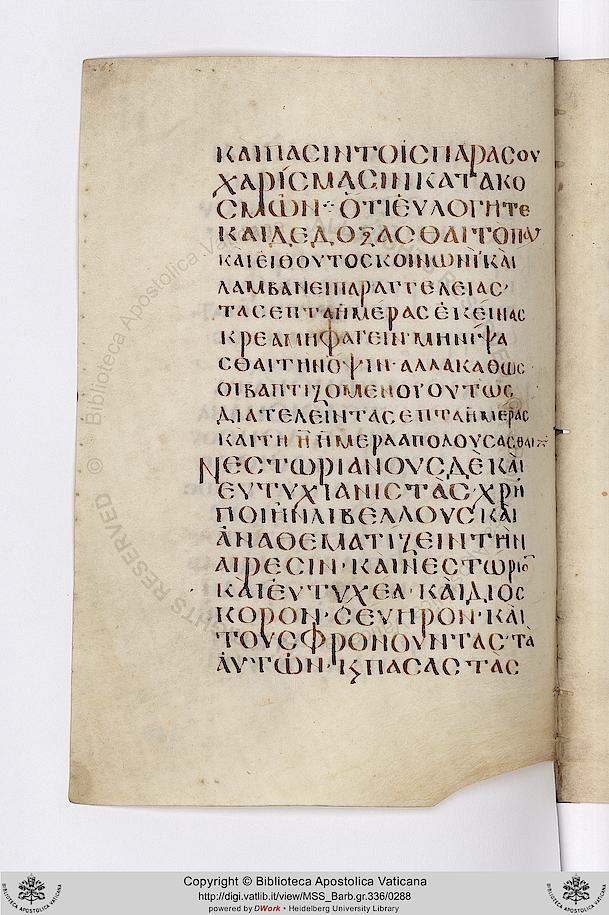 ΚΑΙΠΑϹΙΝΤΟΙϹΠΑΡΑϹΟΥ
ΧΑΡΙϹΜΑϹΙΝΚΑΤΑΚΟ
ϹΜΩΝ· ὉΤΙΕΥΛΟΓΗΤΕ
ΚΑΙΔΕΔΟΞΑϹΘΑΙΤΟΠΑΥ
ΚΑΙΕΙΘΟΥΤΟϹΚΟΙΝΩΝΙΚΑΙ
ΛΑΜΒΑΝΕΙΠΑΡΑΓΓΕΛΕΙΑϹ·
ΤΑϹΕΠΤΑΗΜΕΡΑϹΕΚΕΙΝΑϹ
ΚΡΕΑΜΗΦΑΓΕΙΝ·ΜΗΝΙΨΑ
ϹΘΑΙΤΗΝΟΨΙΝ·ΑΛΛΑΚΑΘΩϹ
ΟΙΒΑΠΤΙΖΟΜΕΝΟΙΟΥΤΩϹ
ΔΙΑΤΕΛΕΙΝΤΑϹΕΠΤΑΗΜΕΡΑϹ
ΚΑΙΤΗ Η ΗΜΕΡΑΑΠΟΛΟΥϹΑϹΘΑΙ
ΝΕϹΤΩΡΙΑΝΟΥϹΔΕΚΑΙ
ΕΥΤΥΧΙΑΝΙϹΤΑϹ·ΧΡΗ
ΠΟΙΗΝΛΙΒΕΛΛΟΥϹΚΑΙ
ΑΝΑΘΕΜΑΤΙΖΕΙΝΤΗΝ
ΑΙΡΕϹΙΝ·ΚΑΙΝΕϹΤΩΡΙΟ
ΚΑΙΕΥΤΥΧΕΑ·ΚΑΙΔΙΟϹ
ΚΟΡΟΝ·ϹΕΥΗΡΟΝ·ΚΑΙ
ΤΟΥϹΦΡΟΝΟΥΝΤΑϹ·ΤΑ
ΑΥΤΩΝ·Κ̣ϚΠΑϹΑϹΤΑϹ
© Biblioteca Apostolica Vaticana
RIGHTS RESERVED
Copyright © Biblioteca Apostolica Vaticana
http://digi.vatlib.it/view/MSS_Barb.gr.336/0288
powered by DWork • Heidelberg University Library